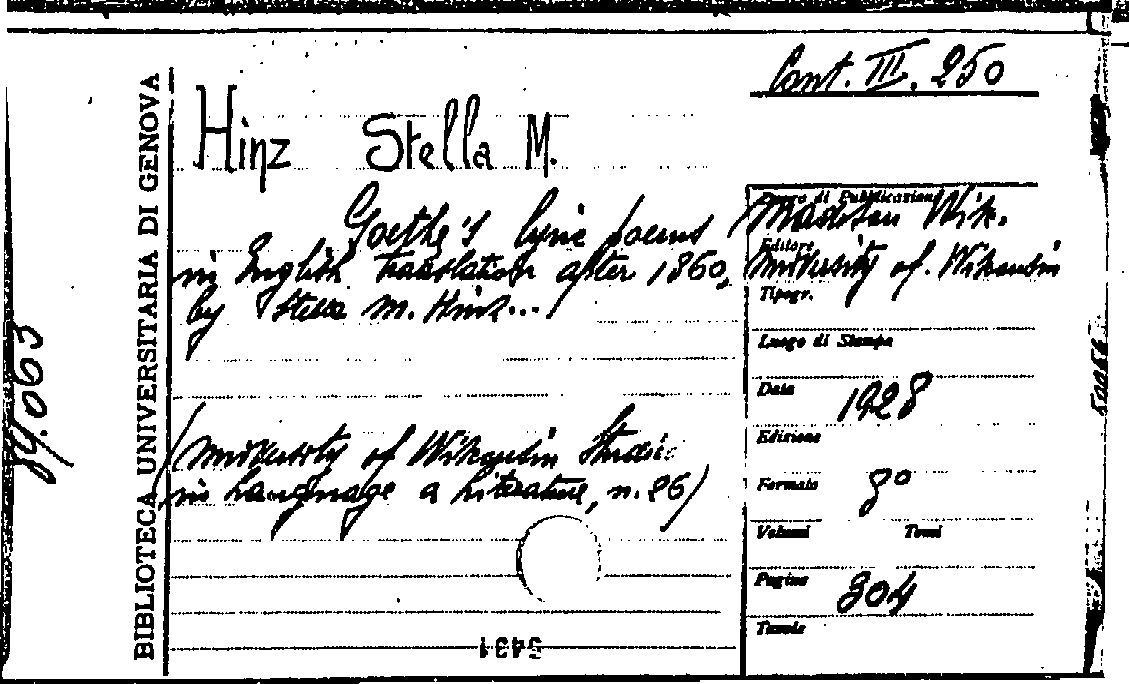 Cont. III. 250
Hinz Stella M.
Goethe's lyric poems
in English translation after 1860,
by Stella M. Hinz...
(University of Wisconsin Studies
in Language a Literature, n. 26)
Luogo di Pubblicazione
Madison Wis.
Editore
University of Wisconsin
Tipogr.
Luogo di Stampa
Data 1928
Edizione
Formato 8°
Volumi Tomi
Pagine
Tavole
BIBLIOTECA UNIVERSITARIA DI GENOVA
5431